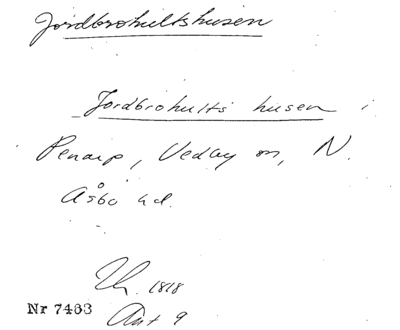 Jordbrohultshusen
Jordbrohults husen i
Penarp, Vedby sn, N.
Åsbo hd.
Lh. 1818
Nr 7463 Ant 9